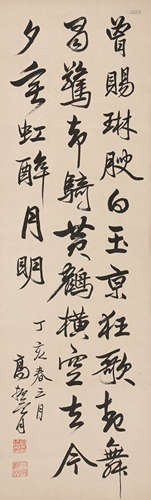 曾賜琳腴白玉京狂歌起舞
驚却騎黃鶴橫空去今
夕垂虹醉月明
丁亥春三月
高振霄